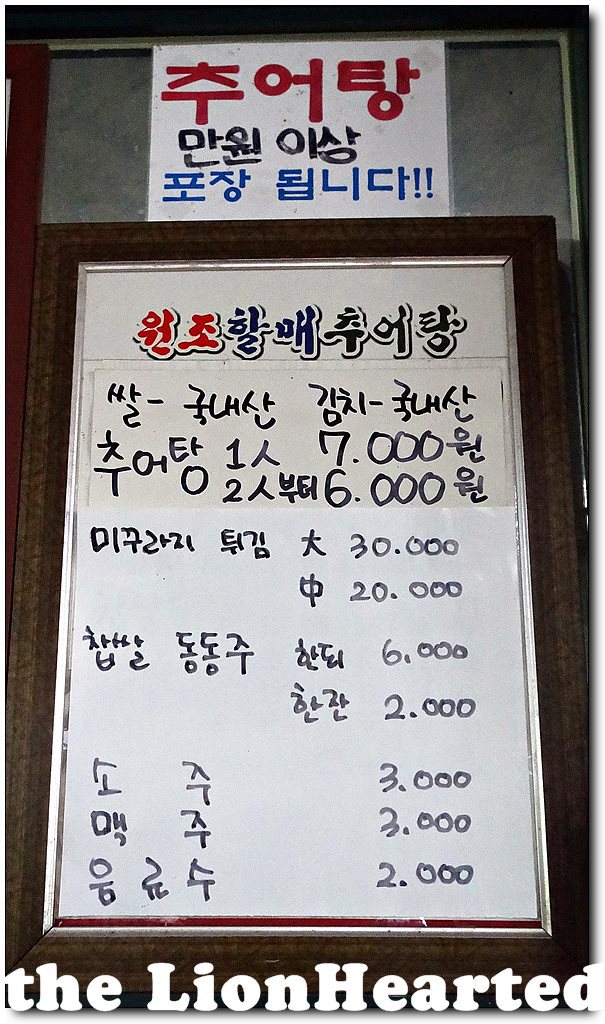 추어탕
만원 이상
포장 됩니다!!
원조할매추어탕
쌀- 국내산 김치-국내산
추어탕 1人 7.000원
2人부터 6.000원
미꾸라지 튀김 大 30.000
中 20.000
찹쌀 동동주 한되 6.000
한잔 2.000
소 주 3.000
맥 주 3.000
음료수 2.000
the LionHearted